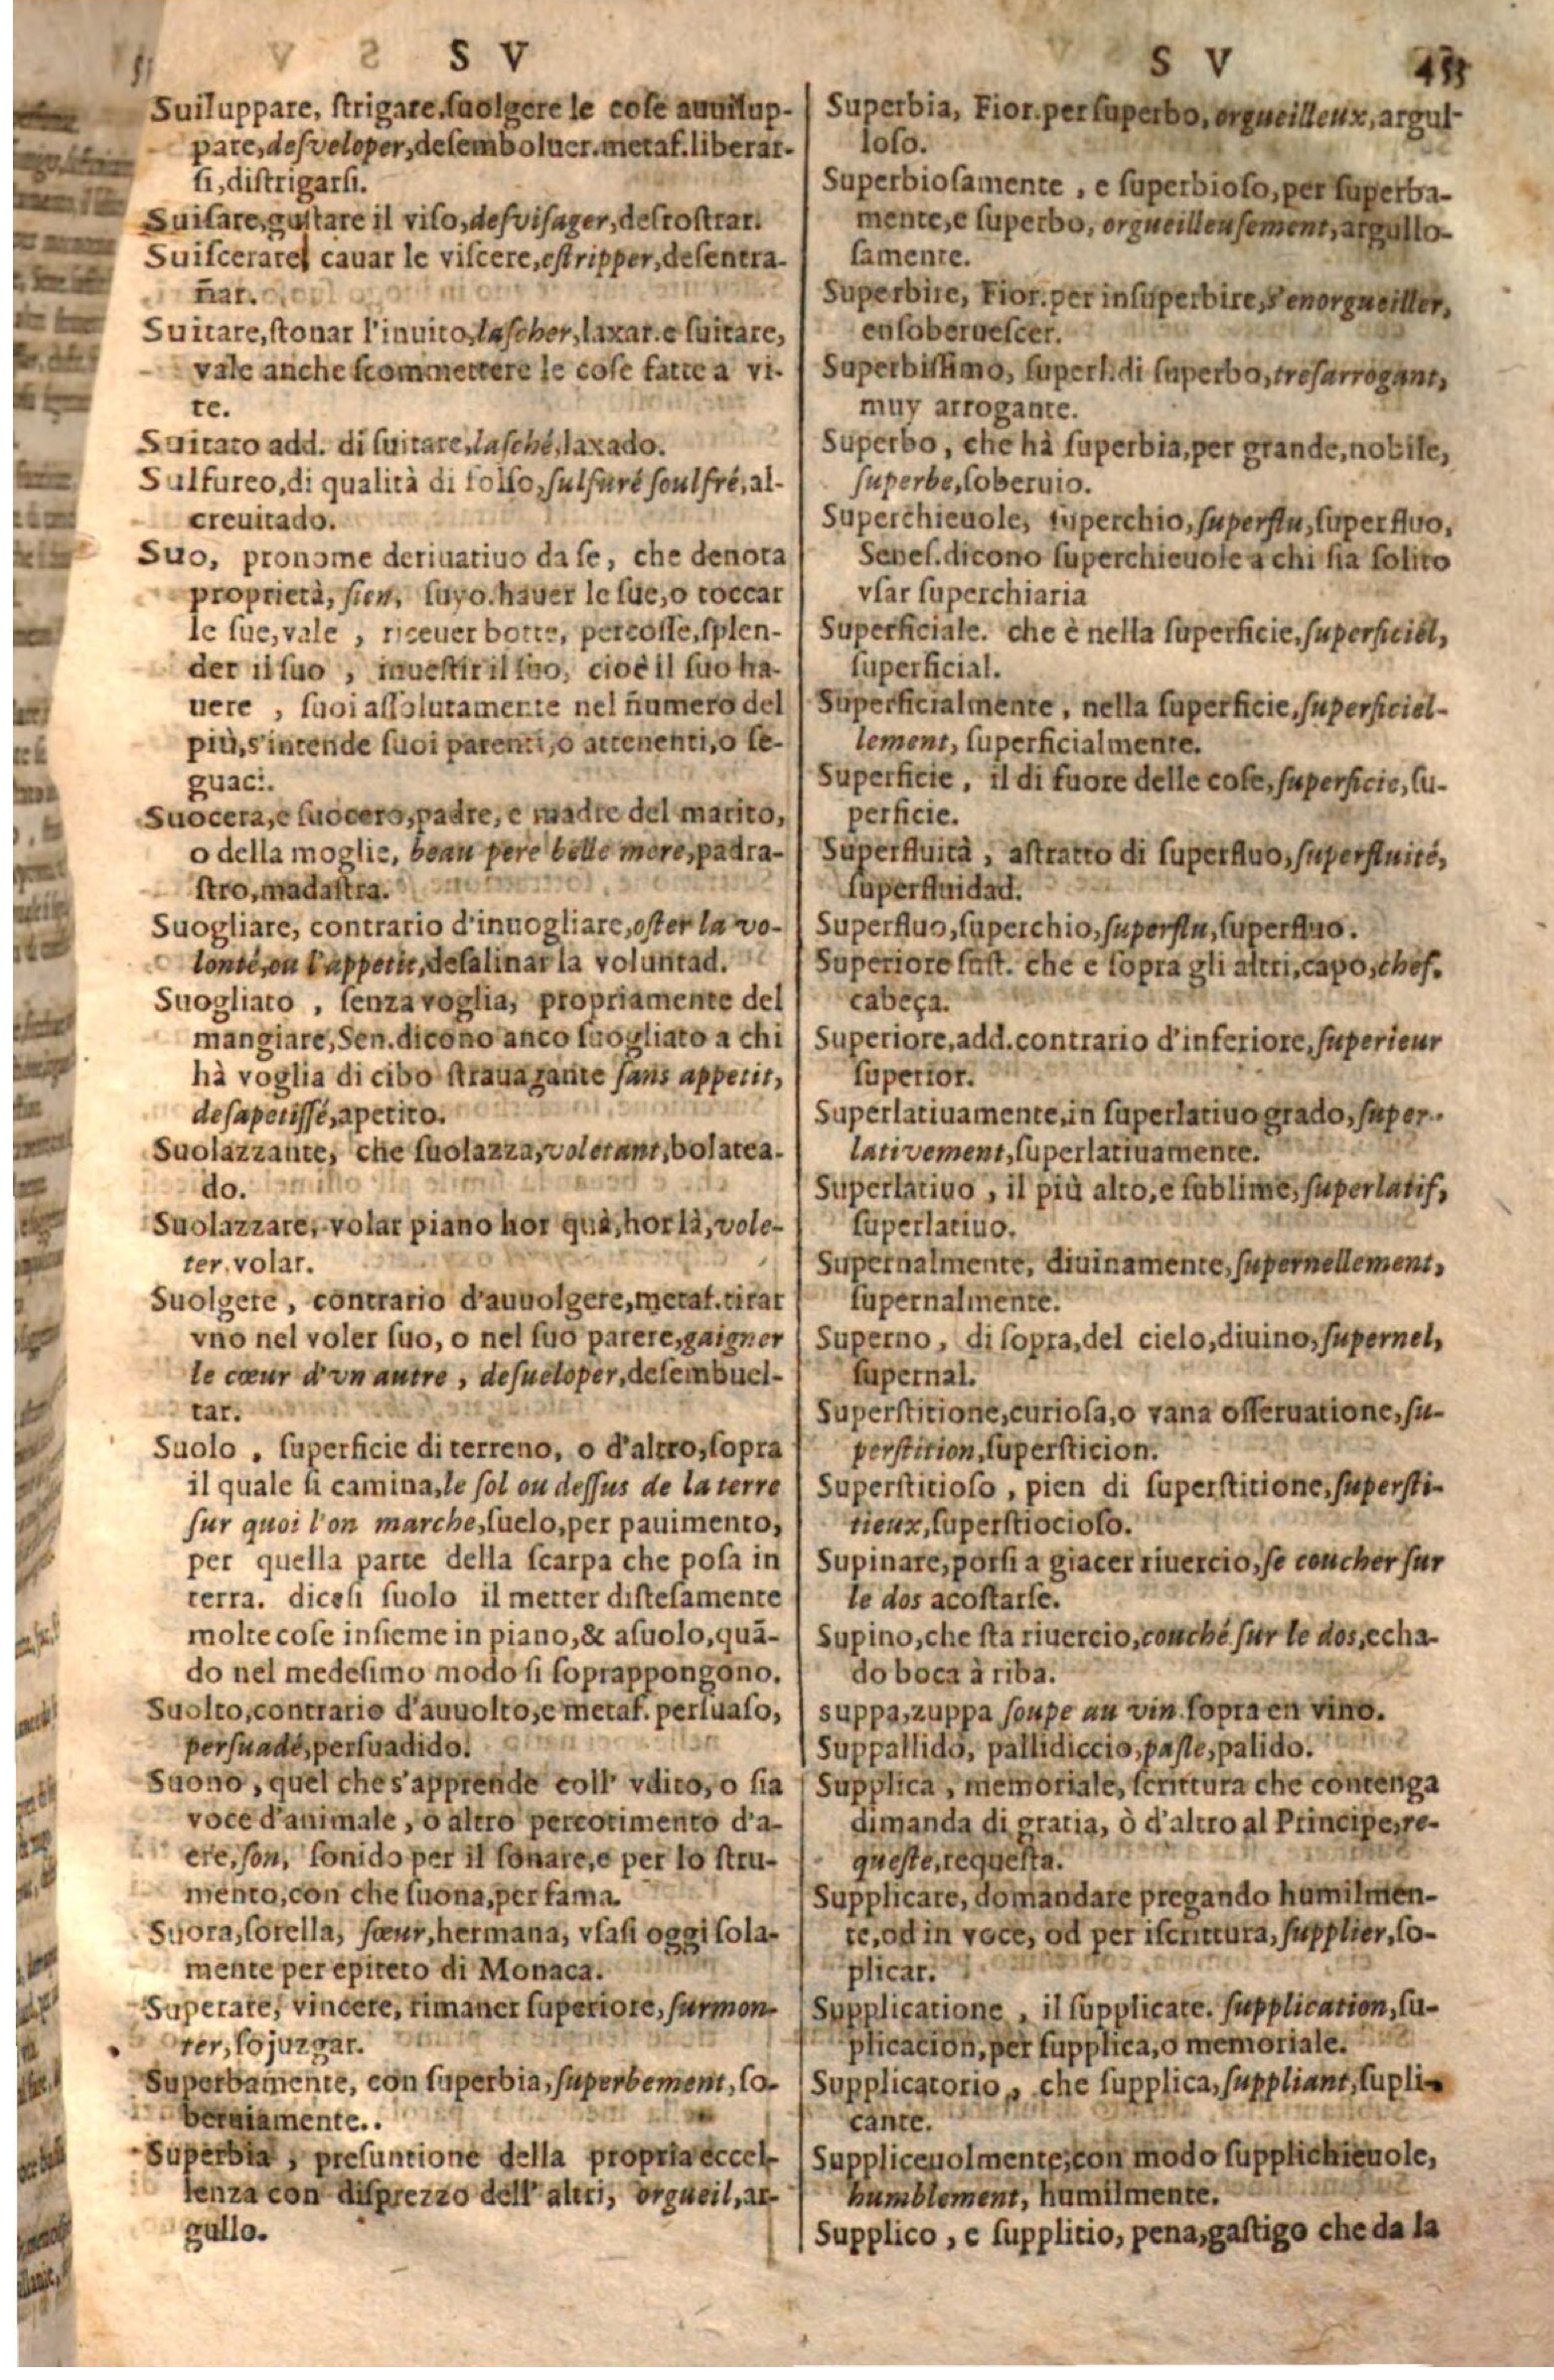 S V
Suiluppare, ſtrigare.ſuolgere le coſe auuilup-
pate,deſveloper,deſemboluer.metaf.liberar-
ſi,diſtrigarſi.
Suiſare,guſtare il viſo,deſviſager,deſroſtrar.
Suiſcerare cauar le viſcere,eſtripper,deſentra-
ñar.
Suitare,ſtonar l'inuito,laſcher,laxar.e ſuitare,
vale anche ſcommettere le coſe fatte a vi-
te.
Suitato add. di ſuitare,laſché,laxado.
Sulfureo,di qualità di ſolfo,sulfuré ſoulfré,al-
creuitado.
Suo, pronome deriuatiuo da ſe, che denota
proprietà, ſien, ſuyo.hauer le ſue,o toccar
le ſue,vale , riceuer botte, percoſſe,ſplen-
der il ſuo , inueſtir il ſuo, cioè il ſuo ha-
uere , ſuoi aſſolutamente nel ñumero del
più,s'intende ſuoi parenti,o attenenti,o ſe-
guaci.
Suocera,e ſuocero,padre, e madre del marito,
o della moglie, beau pere belle mere,padra-
ſtro,madaſtra.
Suogliare, contrario d'inuogliare,oſter la vo-
lonté,ou l'appetit,deſalinar la voluntad.
Suogliato , ſenza voglia, propriamente del
mangiare,Sen.dicono anco ſuogliato a chi
hà voglia di cibo ſtrauagante ſans appetit,
deſapetiſſé,apetito.
Suolazzante, che ſuolazza,voletant,bolatea-
do.
Suolazzare, volar piano hor quà,hor là,vole-
ter,volar.
Suolgere , contrario d'auuolgere,metaf.tirar
vno nel voler ſuo, o nel ſuo parere,gaigner
le cœur d'vn autre , deſueloper,deſembuel-
tar.
Suolo , ſuperficie di terreno, o d'altro,ſopra
il quale ſi camina,le ſol ou deſſus de la terre
ſur quoi l'on marche,ſuelo,per pauimento,
per quella parte della ſcarpa che poſa in
terra. diceſi ſuolo il metter diſteſamente
molte coſe inſieme in piano,& aſuolo,quã-
do nel medeſimo modo ſi ſoprappongono.
Suolto,contrario d'auuolto,e metaf. perſuaſo,
perſuadé,perſuadido.
Suono , quel che s'apprende coll' vdito, o ſia
voce d'animale , o altro percotimento d'a-
ere,ſon, ſonido per il ſonare,e per lo ſtru-
mento,con che ſuona,per fama.
Suora,ſorella, ſœur,hermana, vſaſi oggi ſola-
mente per epiteto di Monaca.
Superare, vincere, rimaner ſuperiore,ſurmon-
ter,ſojuzgar.
Superbamente, con ſuperbia,ſuperbement,ſo-
beruiamente..
Superbia , preſuntione della propria eccel-
lenza con diſprezzo dell' altri, orgueil,ar-
gullo.
S V 455
Superbia, Fior.per ſuperbo,orgueilleux,argul-
loſo.
Superbioſamente , e ſuperbioſo,per ſuperba-
mente,e ſuperbo, orgueilleuſement,argullo-
ſamente.
Superbire, Fior.per inſuperbire,s'enorgueiller,
enſoberueſcer.
Superbiſſimo, ſuperl.di ſuperbo,treſarrogant,
muy arrogante.
Superbo , che hà ſuperbia,per grande,nobile,
ſuperbe,ſoberuio.
Superchieuole, ſuperchio,ſuperflu,ſuperfluo,
Seneſ.dicono ſuperchieuole a chi ſia ſolito
vſar ſuperchiaria
Superficiale. che è nella ſuperficie,ſuperficiel,
ſuperficial.
Superficialmente , nella ſuperficie,ſuperficiel-
lement, ſuperficialmente.
Superficie , il di fuore delle coſe,ſuperficie,ſu-
perficie.
Superfluità , aſtratto di ſuperfluo,ſuperfluité,
ſuperfluidad.
Superfluo,ſuperchio,ſuperflu,ſuperfluo.
Superiore ſuſt. che e ſopra gli altri,capo,chef.
cabeça.
Superiore,add.contrario d'inferiore,ſuperieur
ſuperior.
Superlatiuamente,in ſuperlatiuo grado,ſuper-
lativement,ſuperlatiuamente.
Superlatiuo , il più alto,e ſublime,ſuperlatif,
ſuperlatiuo.
Supernalmente, diuinamente,ſupernellement,
ſupernalmente.
Superno , di ſopra,del cielo,diuino,ſupernel,
ſupernal.
Superſtitione,curioſa,o vana oſſeruatione,ſu-
perſtition,ſuperſticion.
Superſtitioſo , pien di ſuperſtitione,ſuperſti-
tieux,ſuperſtiocioſo.
Supinare,porſi a giacer riuercio,ſe coucher ſur
le dos acoſtarſe.
Supino,che ſta riuercio,couché ſur le dos,echa-
do boca à riba.
suppa,zuppa ſoupe au vin ſopra en vino.
Suppallido, pallidiccio,paſle,palido.
Supplica , memoriale, ſcrittura che contenga
dimanda di gratia, ò d'altro al Principe,re-
queſte,requeſta.
Supplicare, domandare pregando humilmen-
te,od in voce, od per iſcrittura,ſupplier,ſo-
plicar.
Supplicatione , il ſupplicare. ſupplication,ſu-
plicacion,per ſupplica,o memoriale.
Supplicatorio , che ſupplica,ſuppliant,ſupli-
cante.
Suppliceuolmente,con modo ſupplichieuole,
humblement, humilmente.
Supplico , e ſupplitio, pena,gaſtigo che da la